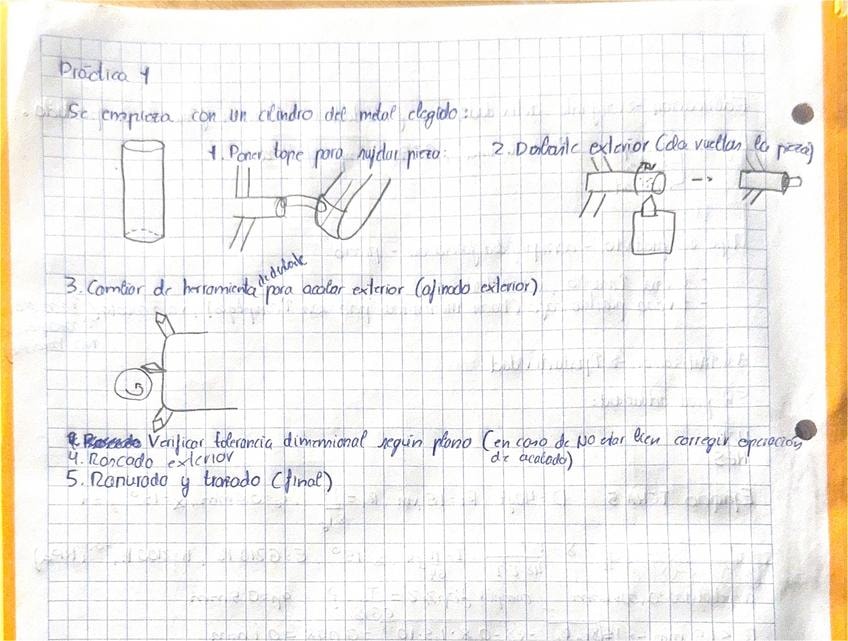 Práctica 1
Se empieza con un cilindro del metal elegido:
1. Poner tope para sujetar pieza:
2. Desbaste exterior (da vueltas la pieza)
3. Cambiar de herramienta de desbaste para acabar exterior (afinado exterior)
Verificar tolerancia dimensional según plano (en caso de NO estar bien corregir operación de acabado)
4. Roscado exterior
5. Ranurado y tronzado (final)